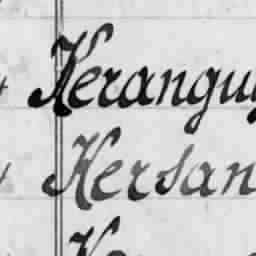 Kerangu
Kersan